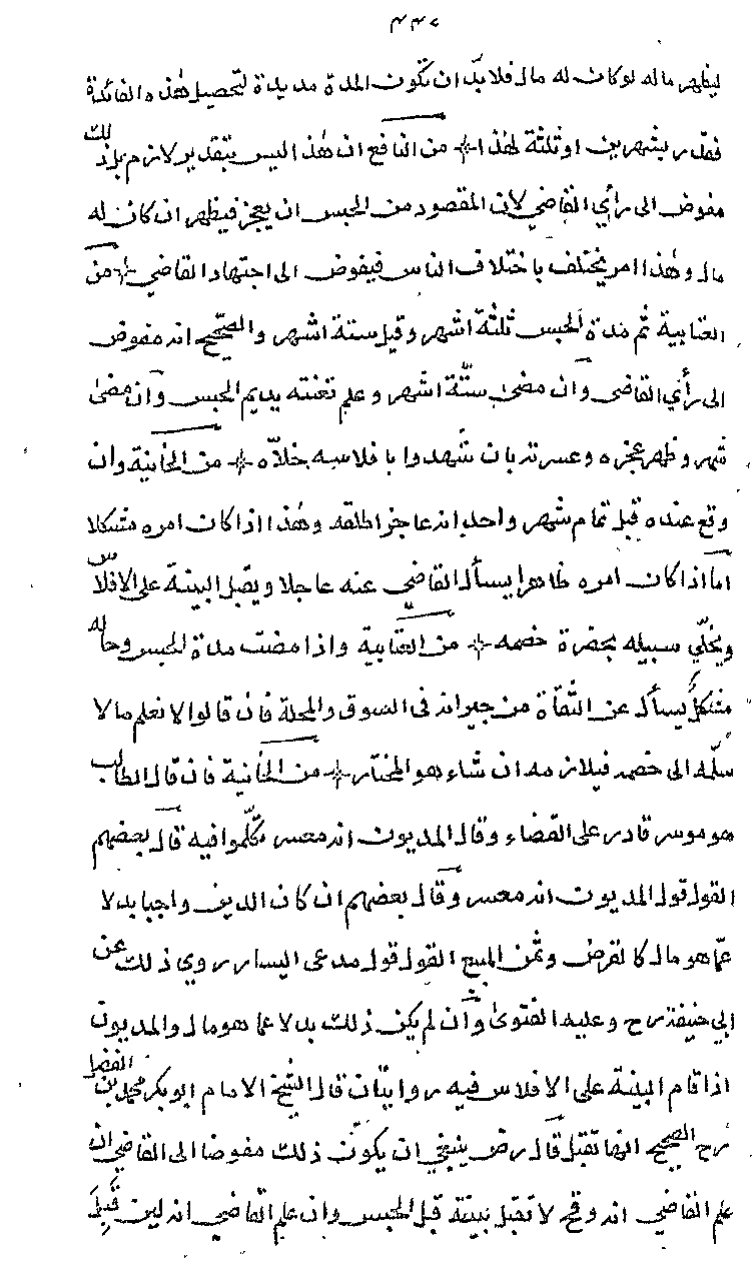 ليظهر ماله لو كان له مال فلا بدّ ان تكون المدة مديدة لتحصيل هذه الفائدة
فقدّر بشهرين او ثلثة لهذا من النافع ان هذا ليس بتقدير لازم بل ذلك
مفوض الى رأي القاضي لان المقصود من الحبس ان يعجز فيظهر ان كان له
مال وهذا امر يختلف باختلاف الناس فيفوض الى اجتهاد القاضي من
العتابية ثم مدة الحبس ثلثة اشهر وقيل ستة اشهر والصحيح انه مفوض
الى رأي القاضي وان مضى ستّة اشهر وعلم تعنته يديم الحبس وان مضى
شهر وظهر عجزه وعسرته بان شهدوا بافلاسه خلاّه من الخانية وان
وقع عنده قبل تمام شهر واحد انه عاجز اطلقه وهذا اذا كان امره مشكلا
امّا اذا كان امره ظاهرا يسأل القاضي عنه عاجلا ويقبل البينة على الافلاس
ويخلّي سبيله بحضرة خصمه من العتابية واذا مضت مدة الحبس وحاله
مشكل يسأل عن الثقاة من جيرانه في السوق والمحلة فان قالوا لا نعلم مالا
سلّمه الى خصمه فيلازمه ان شاء هو المختار من الخانية فان قال الطالب
هو موسر قادر على القضاء وقال المديون انه معسر تكلّموا فيه قال بعضهم
القول قول المديون انه معسر وقال بعضهم ان كان الدين واجبا بدلا
عمّا هو مال كالقرض وثمن المبيع القول قول مدعى اليسار روي ذلك عن
ابي حنيفة رح وعليه الفتوى وان لم يكن ذلك بدلا عما هو مال والمديون
اذا قام البينة على الافلاس فيه روايتان قال الشيخ الامام ابو بكر محمد بن الفضل
رح الصحيح انها تقبل قال رض ينبغي ان يكون ذلك مفوضا الى القاضي ان
علم القاضي انه وقح لا تقبل بينة قبل الحبس وان علم القاضي انه لين قبل